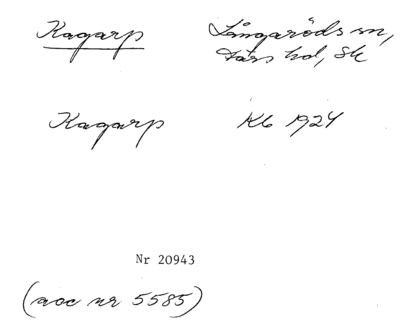 Kagarp Långaröds sn,
Färs hd, Sk
Kagarp Kb 1924
Nr 20943
(acc nr 5585)